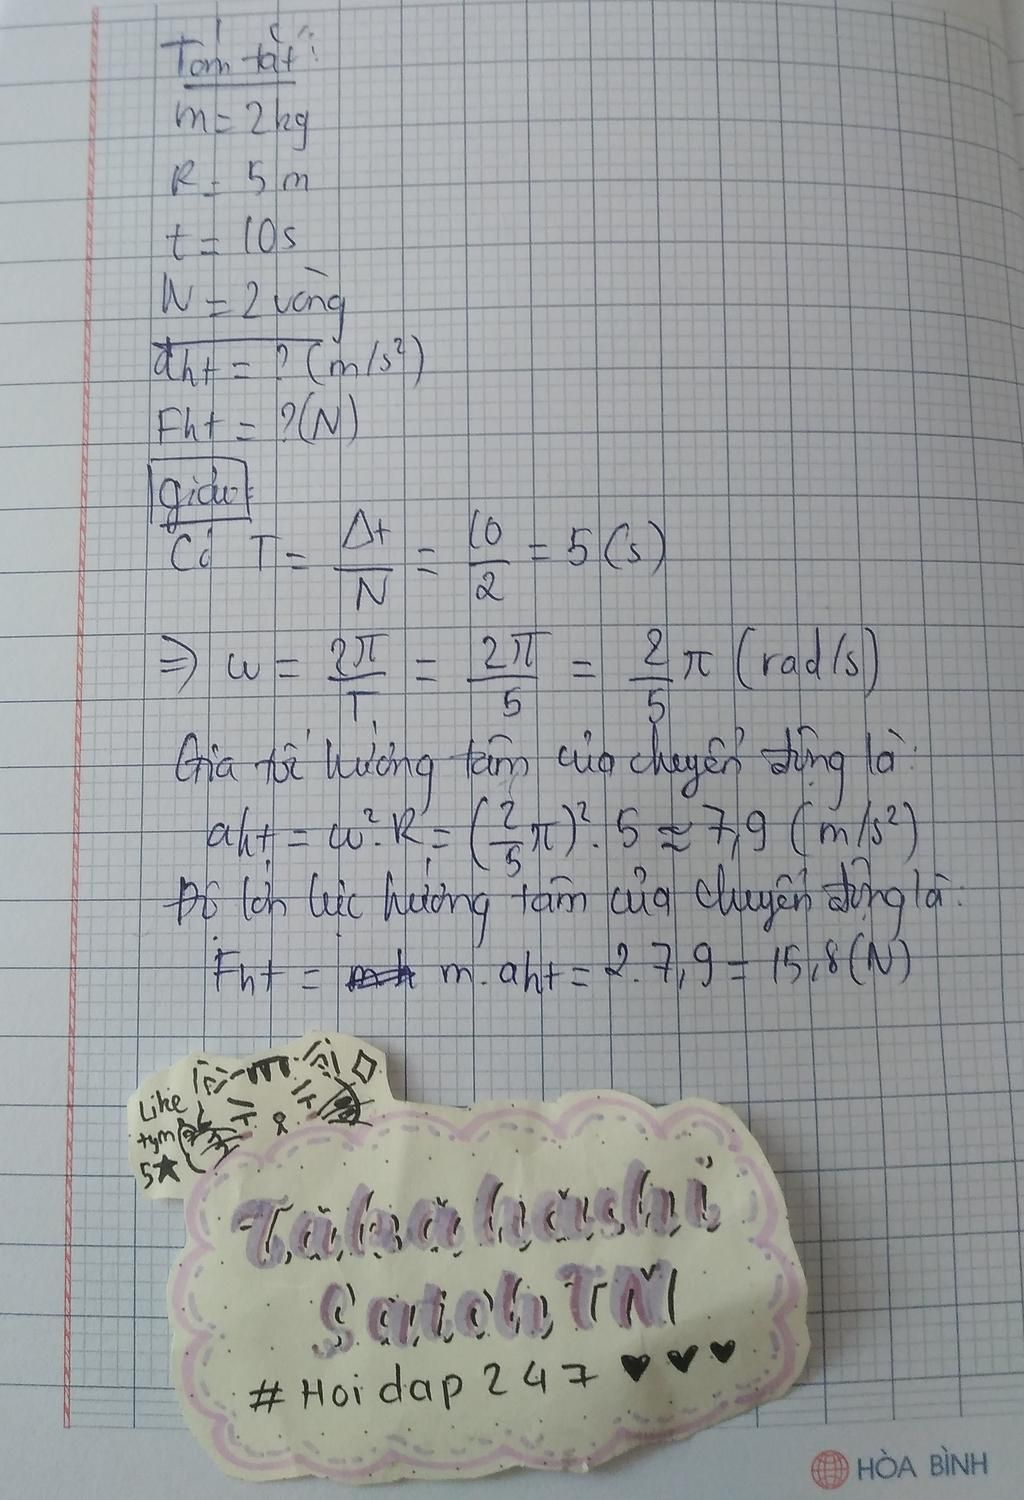 Tóm tắt:
m = 2kg
R = 5m
t = 10s
N = 2 vòng
aht = ? (m/s²)
Fht = ?(N)
giải:
Có T = Δt/N = 10/2 = 5 (s)
=> ω = 2π/T = 2π/5 = 2/5 π (rad/s)
Gia tốc hướng tâm của chuyển động là:
aht = ω².R = (2/5 π)². 5 ≈ 7,9 (m/s²)
Độ lớn lực hướng tâm của chuyển động là:
Fht = m. aht = 2. 7,9 = 15,8 (N)
Like
tym
5★
Takahashi
SatohTM
#Hoidap247 ♥♥♥
HÒA BÌNH